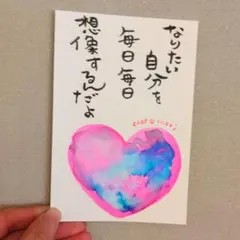 なりたい
自分を
毎日毎日
想像するんだよ